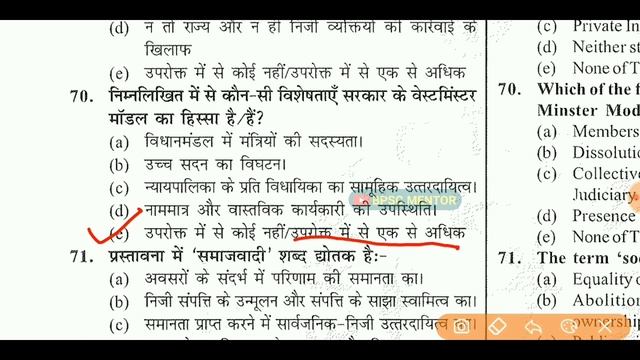 (d) न तो राज्य और न ही निजी व्यक्तियों की कार्रवाई के
खिलाफ
(e) उपरोक्त में से कोई नहीं/उपरोक्त में से एक से अधिक
70. निम्नलिखित में से कौन-सी विशेषताएँ सरकार के वेस्टमिंस्टर
मॉडल का हिस्सा है/हैं?
(a) विधानमंडल में मंत्रियों की सदस्यता।
(b) उच्च सदन का विघटन।
(c) न्यायपालिका के प्रति विधायिका का सामूहिक उत्तरदायित्व।
BPSC MENTOR
(d) नाममात्र और वास्तविक कार्यकारी की उपस्थिति।
(e) उपरोक्त में से कोई नहीं/उपरोक्त में से एक से अधिक
71. प्रस्तावना में ‘समाजवादी’ शब्द द्योतक है:-
(a) अवसरों के संदर्भ में परिणाम की समानता का।
(b) निजी संपत्ति के उन्मूलन और संपत्ति के साझा स्वामित्व का।
(c) समानता प्राप्त करने में सार्वजनिक-निजी उत्तरदायित्व का।
(c) Private In
(d) Neither st
(e) None of T
70. Which of the f
Minster Mod
(a) Members
(b) Dissolutio
(c) Collective
Judiciary.
(d) Presence
(e) None of T
71. The term ‘so
(a) Equality o
(b) Abolition
ownership